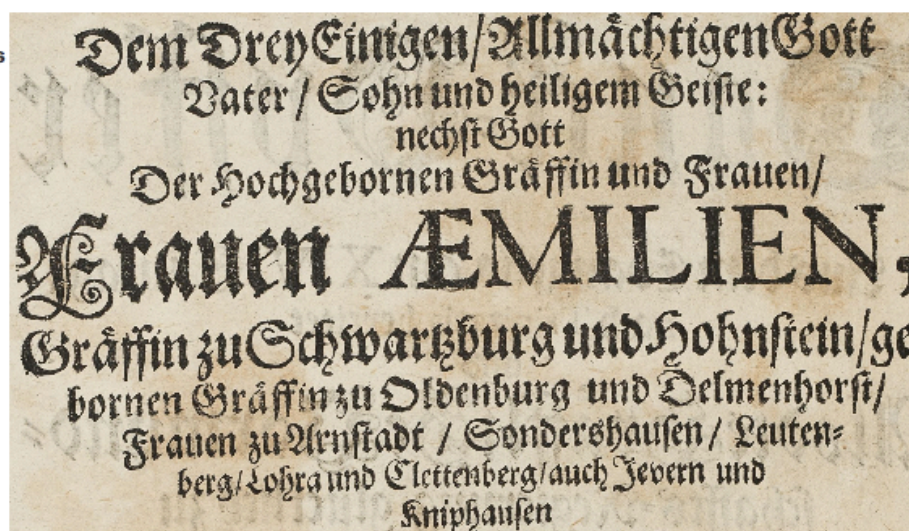 Dem DreyEinigen/Allmächtigen Gott
Vater / Sohn und heiligem Geiste:
nechst Gott
Der Hochgebornen Gräffin und Frauen/
Frauen ÆMILIEN,
Gräffin zu Schwartzburg und Hohnstein/ge
bornen Gräffin zu Oldenburg und Delmenhorst/
Frauen zu Arnstadt / Sondershausen / Leuten-
berg/Lohra und Clettenberg/auch Jevern und
Kniphausen